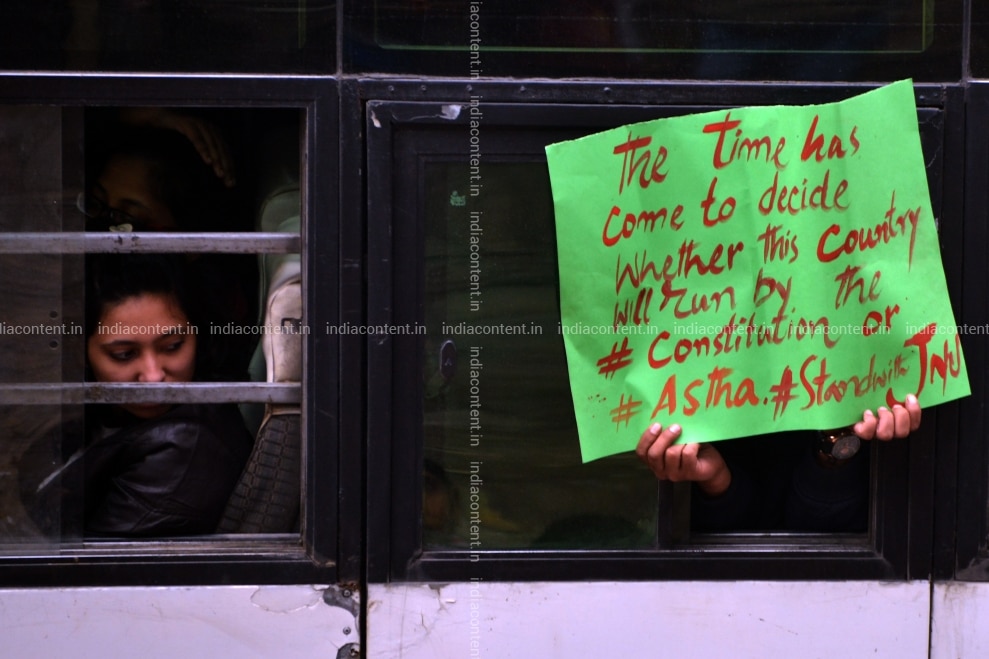 The Time has
come to decide
Whether this Country
will run by the
# Constitution or
# Astha. #Standwith JNU
indiacontent.in indiacontent.in indiacontent.in indiacontent.in indiacontent.in indiacontent.in indiacontent.in indiacontent.in indiacontent.in
indiacontent.in indiacontent.in indiacontent.in indiacontent.in indiacontent.in indiacontent.in